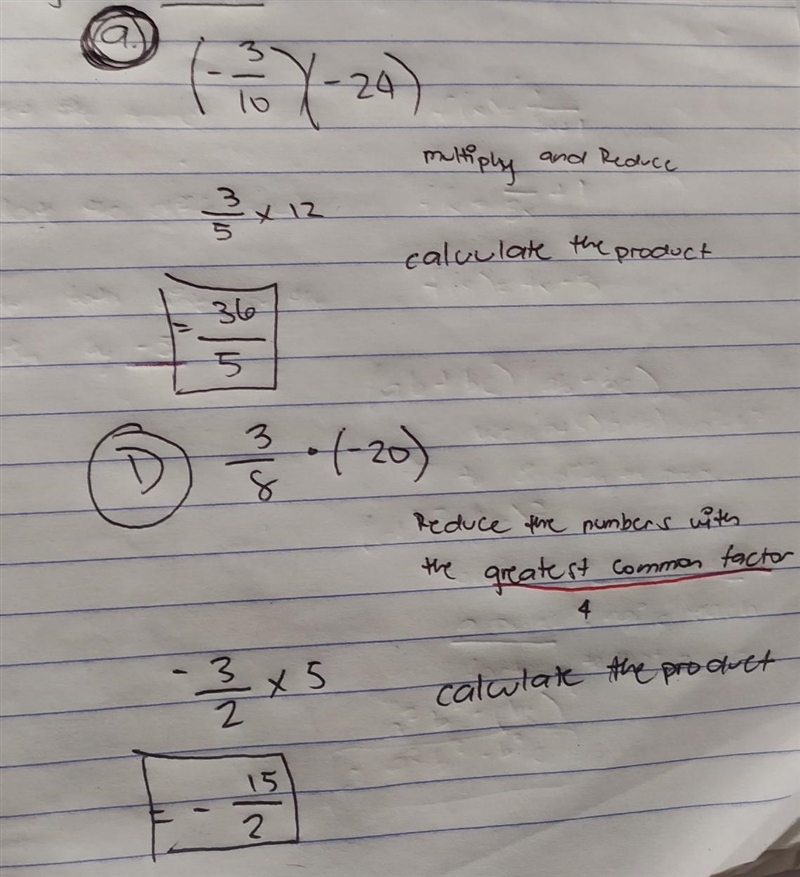 a.
(-3/10)(-24)
multiply and Reduce
3/5 x 12
calculate the product
= 36/5
D 3/8 • (-20)
Reduce the numbers with
the greatest common factor
4
-3/2 x 5 calculate the product
= - 15/2